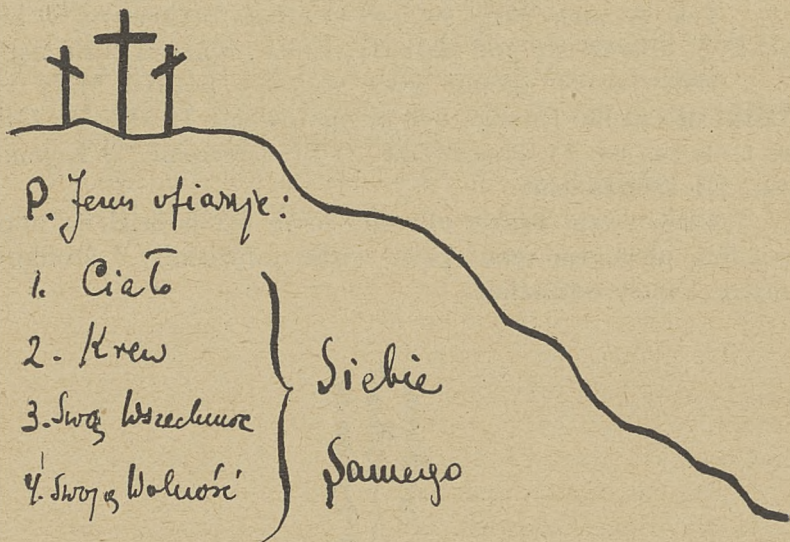 P. Jezus ofiaruje:
1. Ciało
2. Krew
3. Swą Wszechmoc
4. Swoją Wolność
Siebie
Samego